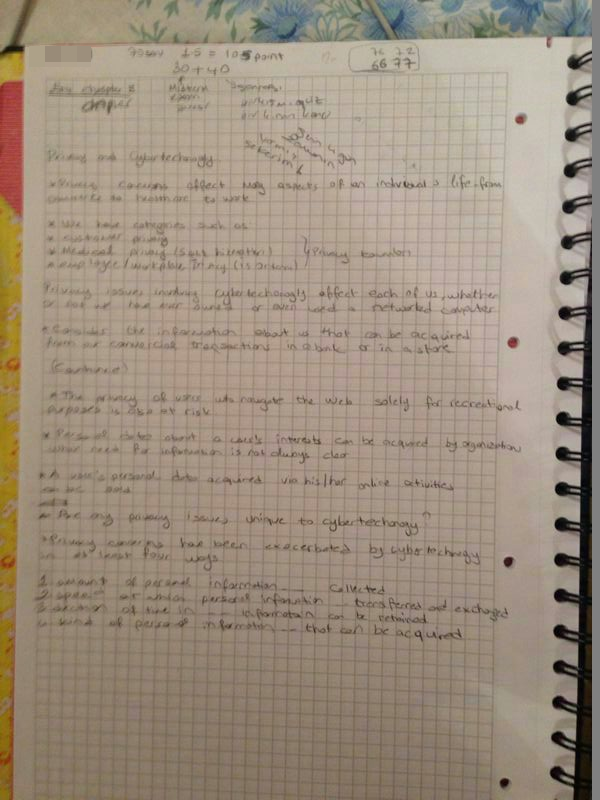 15 = 105 point
30 + 40
76 72
66 77
Midterm
Chapter
Privacy and Cybertechnology
* Privacy concerns affect many aspects of an individual's life - from
commerce to healthcare to work
* We have categories such as
* customer privacy
* Medical privacy
* employee/workplace
Privacy issues involving cybertechnology affect each of us, whether
or not we have ever owned or even used a networked computer
* Consider the information about us that can be acquired
from our commercial transactions in a bank or in a store
(Continued)
* The privacy of users who navigate the Web solely for recreational
purposes is also at risk
* Personal data about a user's interests can be acquired by organization
whose need for information is not always clear
* A user's personal data acquired via his/her online activities
can be sold
* Are any privacy issues unique to cybertechnology?
* Privacy concerns have been exacerbated by cybertechnology
in at least four ways
1. amount of personal information ---- collected
2. speed at which personal information --- transferred and exchanged
3. duration of time in --- information can be retained
4. kind of personal information --- that can be acquired